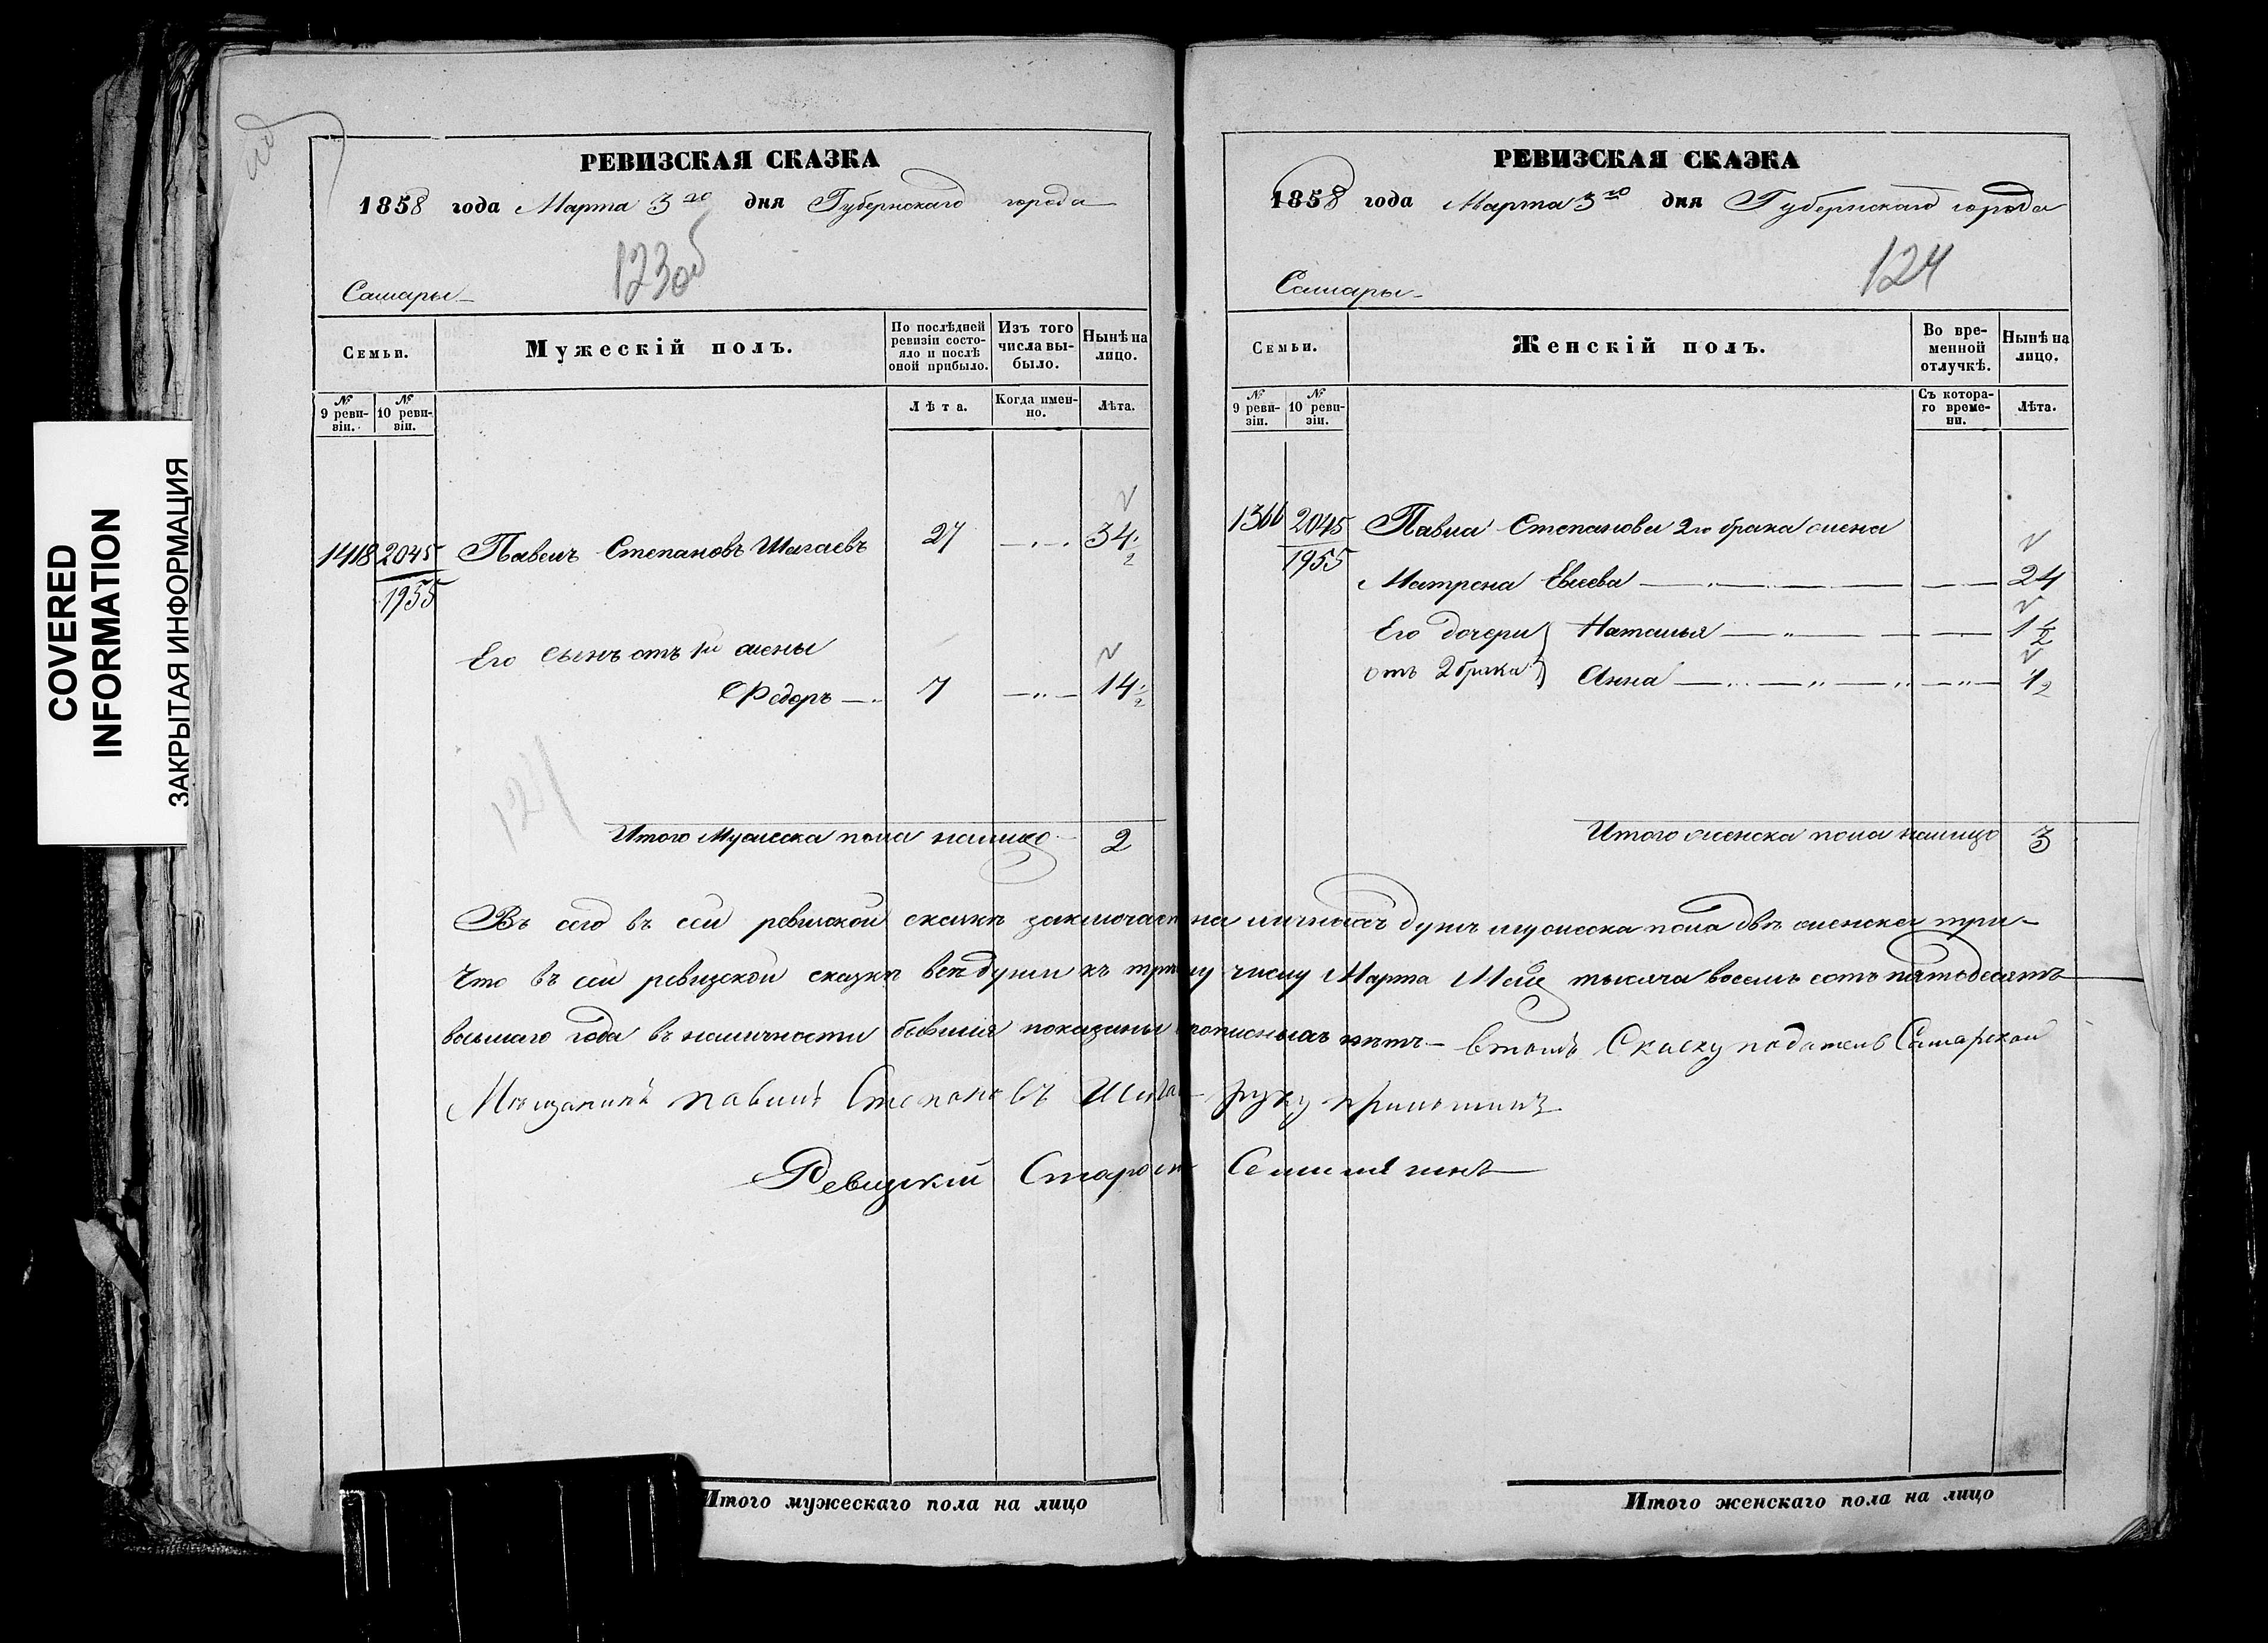 COVERED
INFORMATION
ЗАКРЫТАЯ ИНФОРМАЦИЯ
РЕВИЗСКАЯ СКАЗКА
1858 года Марта 3го дня Губернскаго города
123об
Самары
Семьи.
Мужескій полъ.
По послѣдней ревизіи состояло и послѣ оной прибыло.
Изъ того числа выбыло.
Нынѣ на лицо.
№ 9 ревизіи.
№ 10 ревизіи.
Лѣта.
Когда именно.
Лѣта.
1418 2045 Павелъ Степановъ Шагаевъ 27 34 1/2
1955
Его сынъ отъ 1й жены
Федоръ 7 14 1/2
124
Итого Мужеска пола налицо 2
РЕВИЗСКАЯ СКАЗКА
1858 года Марта 3го дня Губернскаго города
124
Самары
Семьи.
Женскій полъ.
Во временной отлучкѣ.
Нынѣ на лицо.
№ 9 ревизіи.
№ 10 ревизіи.
Съ котораго времени.
Лѣта.
1366 2045 Павла Степанова 2го брака жена
1955
Матрена 24
Его дочери Наталья 1 1/2
отъ 2 брака Анна 1/2
Итого женска пола налицо 3
въ сей ревизской сказкѣ на душъ мужеска пола двѣ женска три
Что въ сей ревизской сказкѣ всѣ души къ третьему числу Марта тысяча восемь сотъ пятьдесятъ
восьмаго года въ наличности бывшія показаны прописныхъ нѣтъ Скаску Самарской
Мещанинъ Степановъ руку
Ревизскій Староста
Итого мужескаго пола на лицо
Итого женскаго пола на лицо